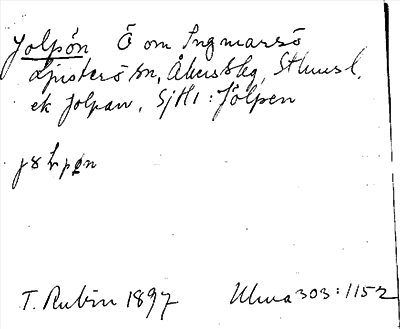 Jolpön Ö om Ingmarsö
Ljusterö sn, Åkersbg, Sthms l.
ek Jolpan, SjHl: Jölpen
T. Rubin 1897 Ulma 303:1152